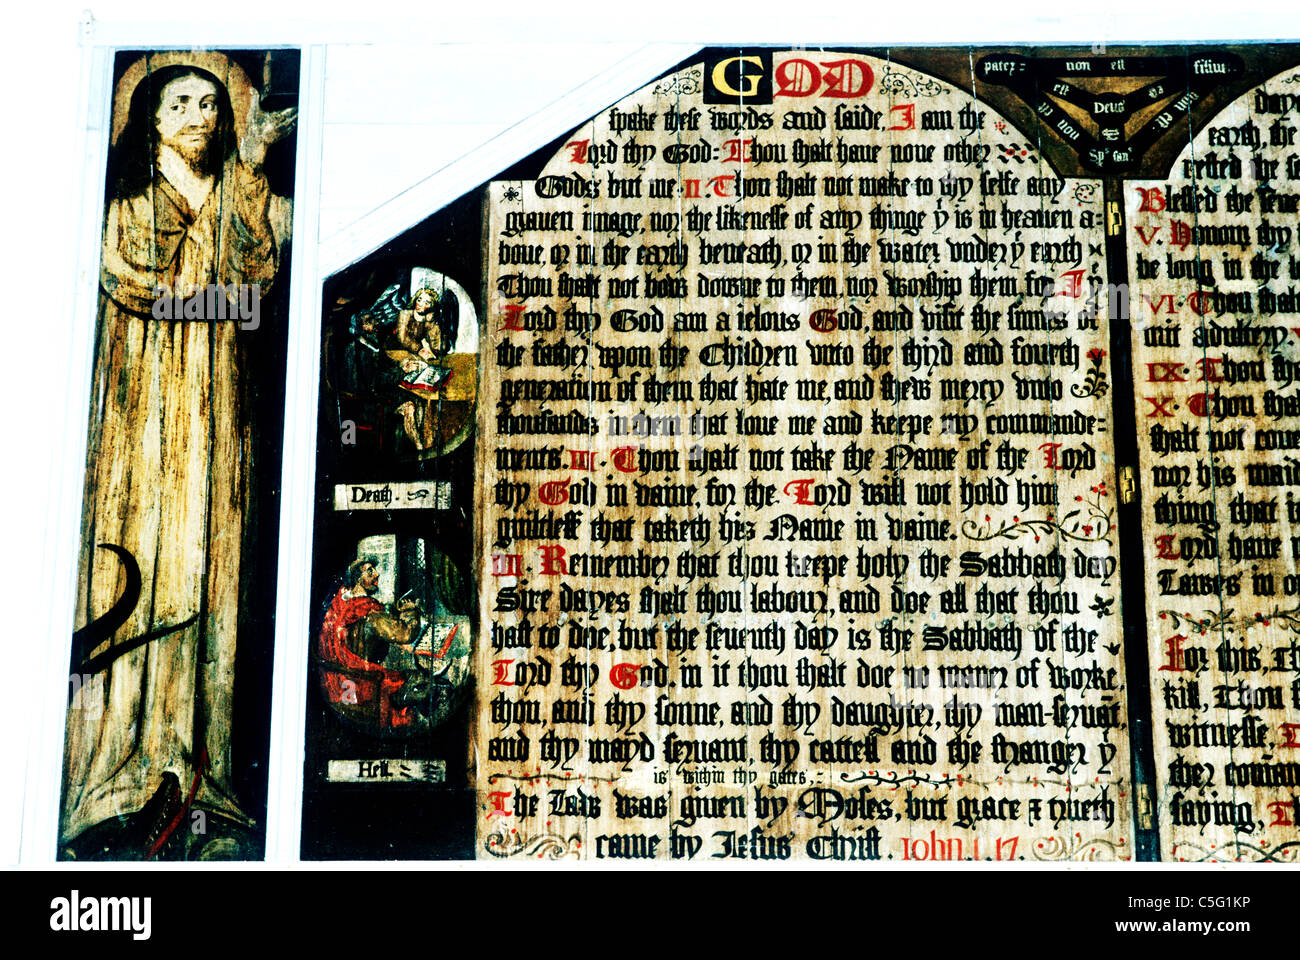 GOD
spake these words and saide, I am the
Lord thy God: Thou shalt have none other
Gods but me. II. Thou shalt not make to thy selfe any
graven image, nor the likenesse of any thinge yͭ is in heaven a-
bove, or in the earth beneath, or in the water under yͤ earth
Thou shalt not bow downe to them, nor worship them, for I yͤ
Lord thy God am a ielous God, and visit the sinnes of
the father upon the Children unto the third and fourth
generation of them that hate me, and shew mercy unto
thousands in them that love me and keepe my commande-
ments. III. Thou shalt not take the Name of the Lord
thy God in vaine, for the Lord will not hold him
guiltless that taketh his Name in vaine.
IIII. Remember that thou keepe holy the Sabbath day
Sixe dayes shalt thou labour, and doe all that thou
hast to doe, but the seventh day is the Sabbath of the
Lord thy God, in it thou shalt doe no maner of worke,
thou, and thy sonne, and thy daughter, thy man-servāt,
and thy mayd servant, thy cattell and the stranger yͭ
is within thy gates,
The Law was given by Moses, but grace & trueth
came by Jesus Christ. Iohn. 1. 17.
Death.
Hell.
pater non est filius
est est
non non est
Deus
Sp͛ san͛
day
earth, the
rested the se
Blessed the seve
V. Honour thy
be long in the l
VI. Thou shal
mit adultery.
IX. Thou sha
X. Thou shal
shalt not cove
nor his maid
thing that i
Lord, have
Lawes in o
For this, Th
kill, Thou
witnesse,
ther coman
saying, Th
alamy
a
a
a
a
alamy
Image ID: C5G1KP
www.alamy.com